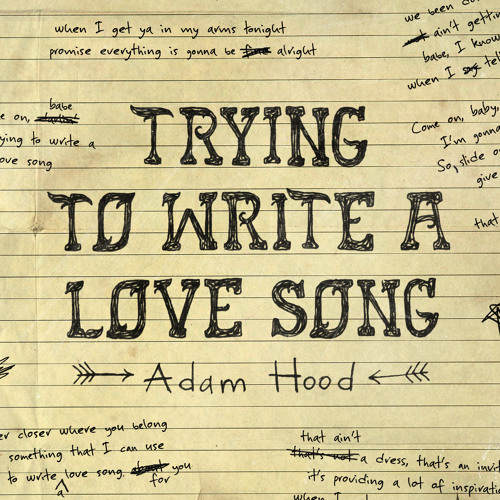 when I get ya in my arms tonight
promise everything is gonna be alright
we been
ain't gettin
babe, I know
when I say tel
babe
e on,
ying to write a
ove song
Come on, baby,
I'm gonna
So, slide o
give
that
TRYING
TO WRITE A
LOVE SONG
Adam Hood
er closer where you belong
something that I can use
to write love song, about you
a
for
that ain't
that's not a dress, that's an invit
it's providing a lot of inspiratio
when I